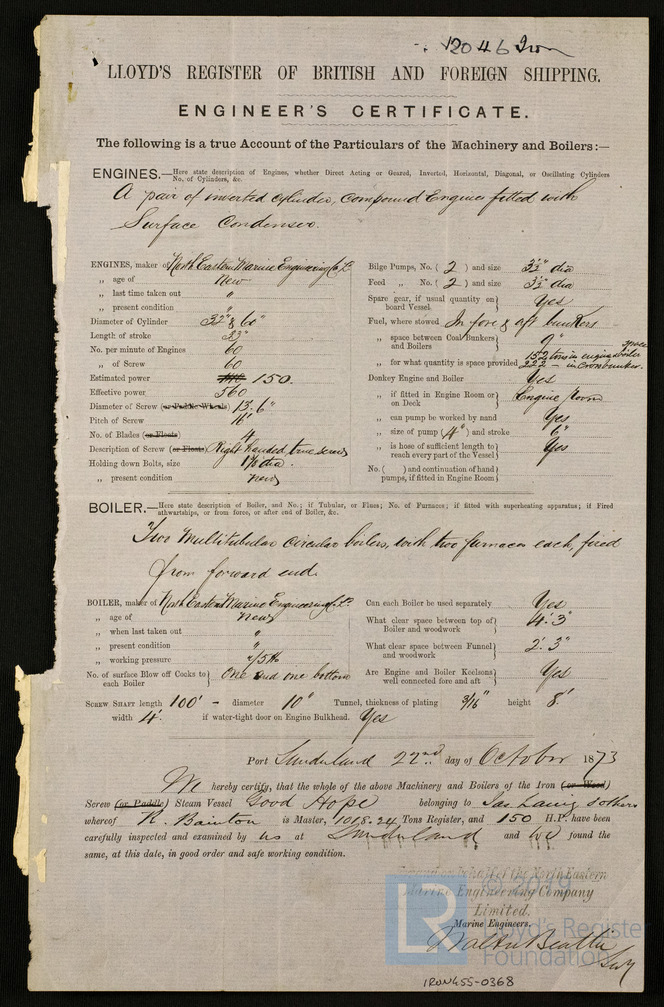 12046 Iron
LLOYD'S REGISTER OF BRITISH AND FOREIGN SHIPPING.
ENGINEER'S CERTIFICATE.
The following is a true Account of the Particulars of the Machinery and Boilers:—
ENGINES.—Here state description of Engines, whether Direct Acting or Geared, Inverted, Horizontal, Diagonal, or Oscillating Cylinders
No. of Cylinders, &c.
A pair of inverted cylinder, compound Engines fitted with
Surface Condenser.
ENGINES, maker of North Eastern Marine Engineering Co Ld
„ age of New
„ last time taken out "
„ present condition "
Diameter of Cylinder 32" & 60"
Length of stroke 33"
No. per minute of Engines 60
„ of Screw 60
Estimated power 150.
Effective power 560
Diameter of Screw (or Paddle Wheels) 13'. 6"
Pitch of Screw 16'
No. of Blades (or Floats) 4
Description of Screw (or Floats) Right handed, true screw
Holding down Bolts, size dia.
„ present condition new
Bilge Pumps, No. ( 2 ) and size 3½" dia
Feed „ No. ( 2 ) and size 3½" dia
Spare gear, if usual quantity on
board Vessel Yes
Fuel, where stowed In fore & aft bunkers
„ space between Coal Bunkers
and Boilers 9"
„ for what quantity is space provided 152 tons in engine & boiler space
222 — in Cross bunker.
Donkey Engine and Boiler Yes
„ if fitted in Engine Room or
on Deck Engine Room
„ can pump be worked by hand Yes
„ size of pump ( 4" ) and stroke 6"
„ is hose of sufficient length to
reach every part of the Vessel Yes
No. ( ) and continuation of hand
pumps, if fitted in Engine Room
BOILER.—Here state description of Boiler, and No.; if Tubular, or Flues; No. of Furnaces; if fitted with superheating apparatus; if Fired
athwartships, or from force, or after end of Boiler, &c.
Two Multitubular circular boilers, with two furnaces each, fired
from forward end.
BOILER, maker of North Eastern Marine Engineering Co Ld.
„ age of new
„ when last taken out "
„ present condition "
„ working pressure 75 lb
No. of surface Blow off Cocks to
each Boiler One and one bottom
Can each Boiler be used separately Yes
What clear space between top of
Boiler and woodwork 4'. 3"
What clear space between Funnel
and woodwork 2'. 3"
Are Engine and Boiler Keelsons
well connected fore and aft Yes
SCREW SHAFT length 100' - diameter 10" Tunnel, thickness of plating 3/16" height 8'
width 4'. if water-tight door on Engine Bulkhead. Yes
Port Sunderland 22nd day of October 1873
We hereby certify, that the whole of the above Machinery and Boilers of the Iron (or Wood)
Screw (or Paddle) Steam Vessel Good Hope belonging to Jas Laing & others
whereof R. Bainton is Master, 1018.24 Tons Register, and 150 H.P. have been
carefully inspected and examined by us at Sunderland and we found the
same, at this date, in good order and safe working condition.
For and on behalf of the North Eastern
Marine Engineering Company
Limited.
Marine Engineers.
Walter Beattie
Secy
LR
© 2019
Lloyd's Register
Foundation
IRON455-0368